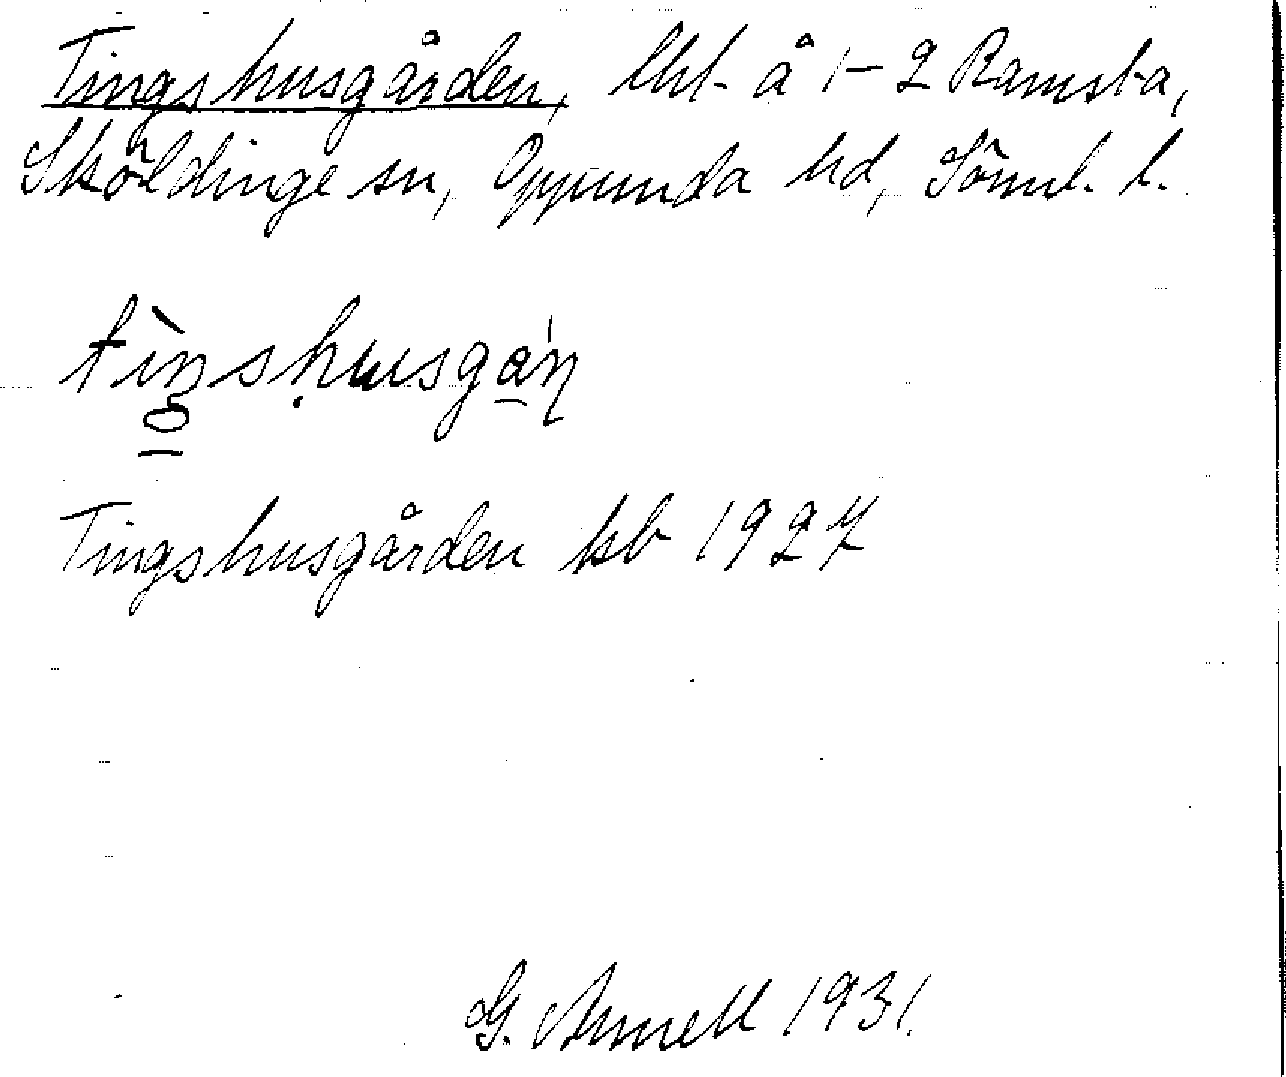 Tingshusgården, lht. å 1-2 Ramsta,
Sköldinge sn, Oppunda hd, Söml. l.
tìŋshusgá̱ṇ
Tingshusgården kb 1927
G. Arnell 1931.